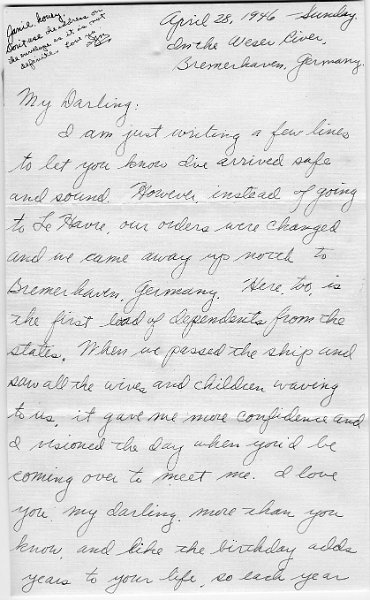 Janie honey
Don't use the address on
the envelope as it is not
definite. Love you
April 28, 1946 - Sunday
In the Weser River,
Bremerhaven, Germany.
My Darling:
I am just writing a few lines
to let you know I've arrived safe
and sound. However, instead of going
to Le Havre, our orders were changed
and we came away up north to
Bremerhaven, Germany. Here, too, is
the first load of dependents from the
states. When we passed the ship and
saw all the wives and children waving
to us, it gave me more confidence and
I visioned the day when you'd be
coming over to meet me. I love
you, my darling, more than you
know, and like the birthday adds
years to your life, so each year